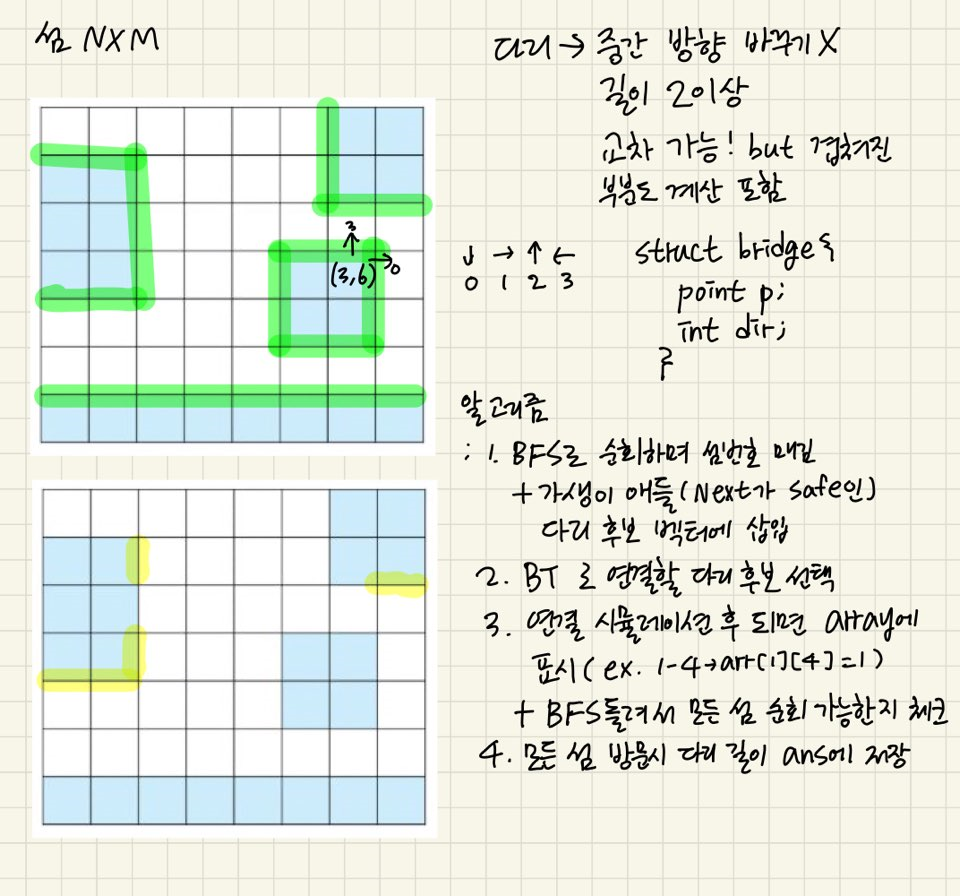 섬 NXM
다리 → 중간 방향 바꾸기 X
길이 2이상
교차 가능! but 겹쳐진
부분도 계산 포함
3
↑
(3,6)→0
↓ → ↑ ←
0 1 2 3
struct bridge {
point p;
int dir;
}
알고리즘
: 1. BFS로 순회하며 섬번호 매김
+ 가생이 애들(Next가 safe인)
다리 후보 벡터에 삽입
2. BT 로 연결할 다리 후보 선택
3. 연결 시뮬레이션 후 되면 array에
표시(ex. 1-4→arr[1][4]=1)
+ BFS돌려서 모든 섬 순회 가능한지 체크
4. 모든 섬 방문시 다리 길이 ans에 저장